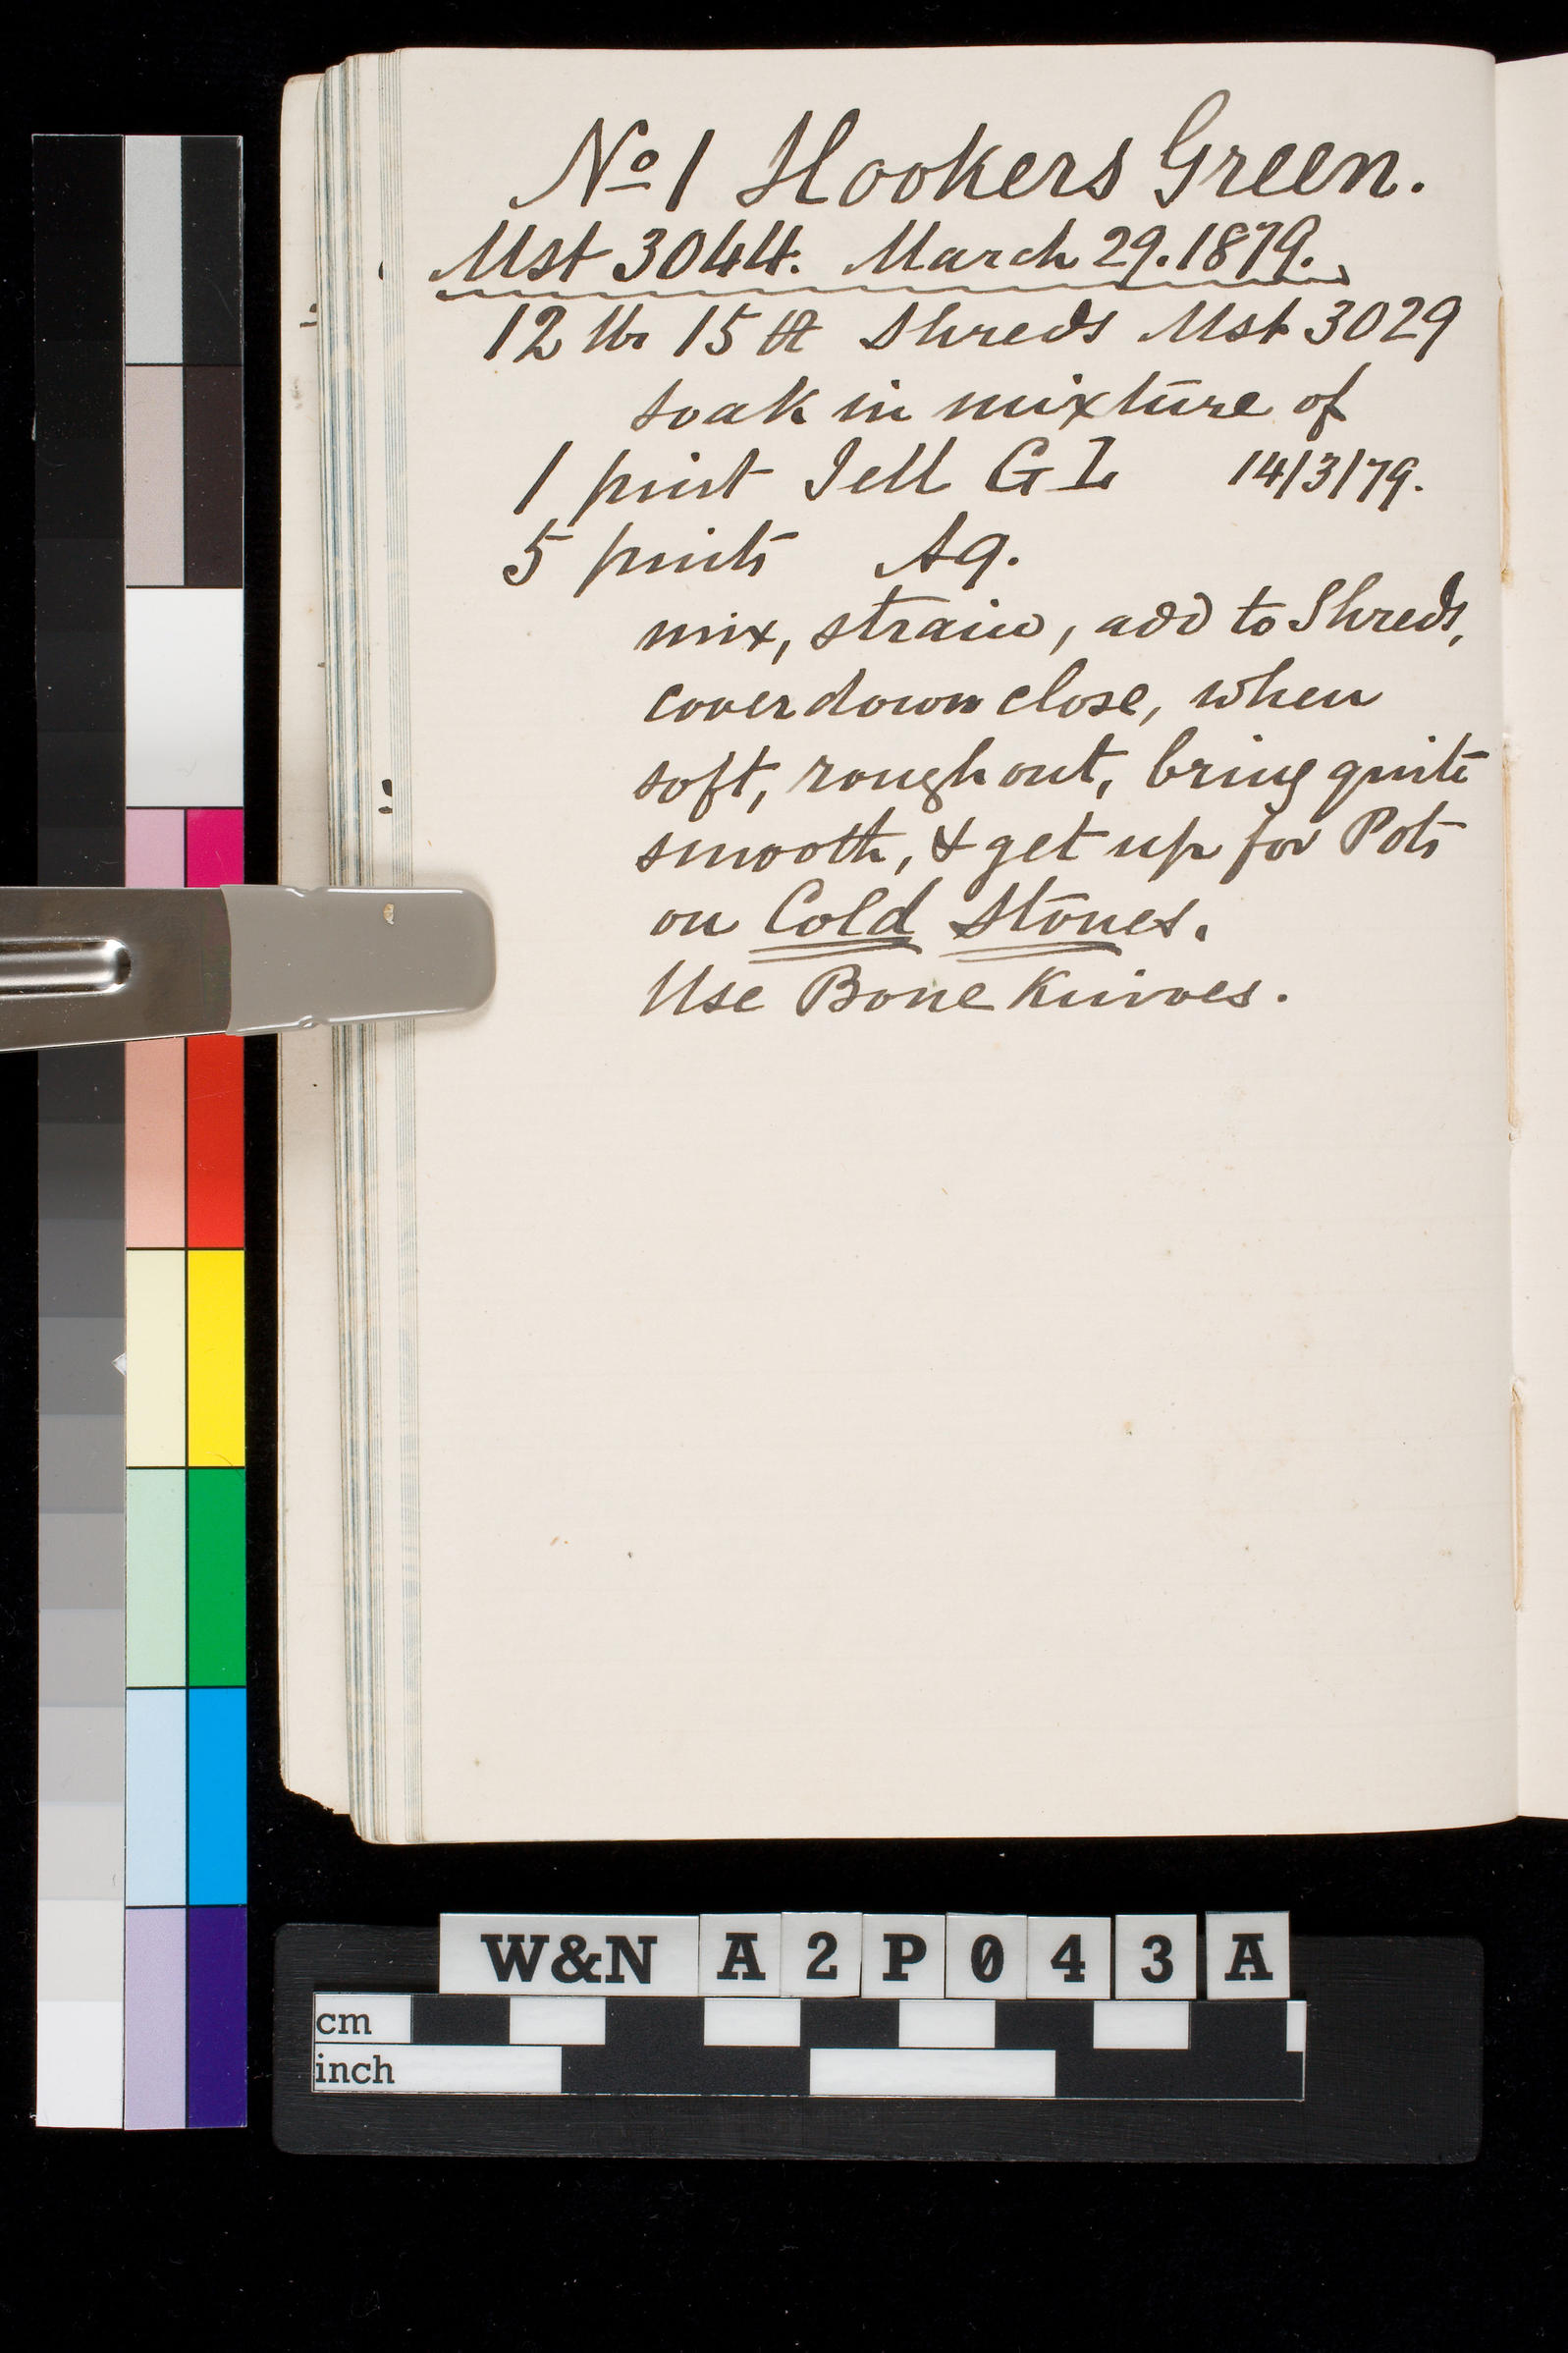 No 1 Hookers Green.
Mst 3044. March 29. 1879.
12 lbs 15 Shreds Mst 3029
soak in mixture of
1 pint Jell G I 14/3/79.
5 pints Aq.
mix, strain, add to Shreds,
cover down close, when
soft, rough out, bring quite
smooth, & get up for Pots
on Cold Stones.
Use Bone Knives.
W&N A2P043A
cm
inch